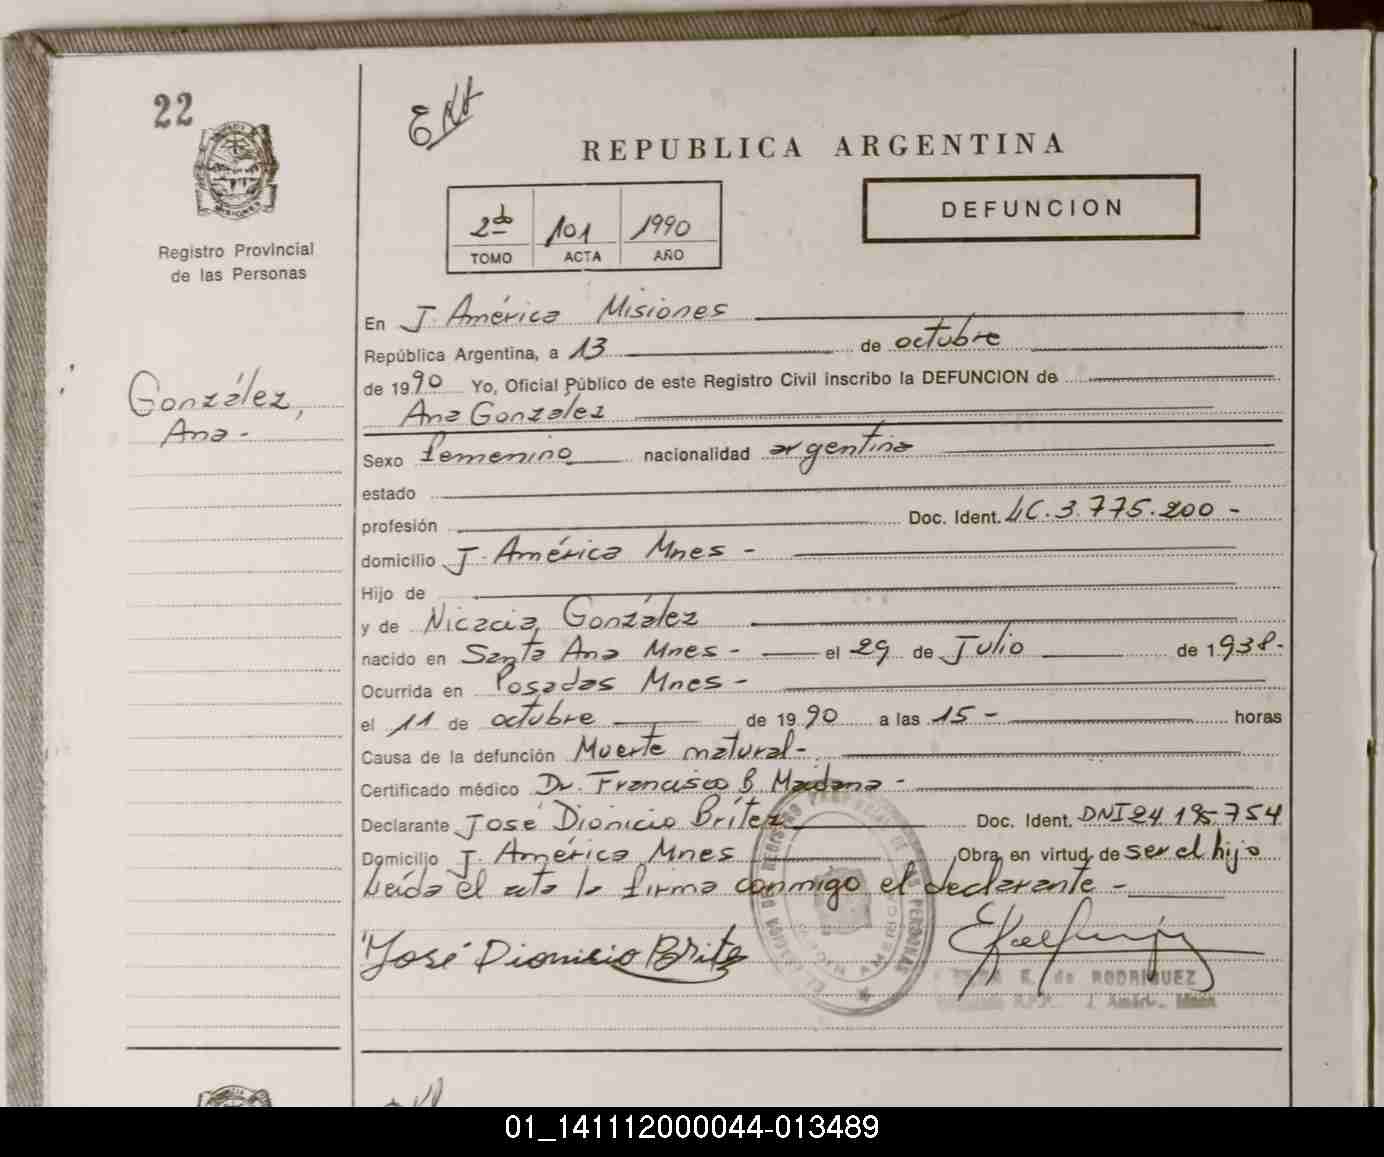 22
Ext
REPUBLICA ARGENTINA
DEFUNCION
2do 101 1990
TOMO ACTA AÑO
Registro Provincial
de las Personas
González,
Ana -
En J. América Misiones
República Argentina, a 13 de octubre
de 1990 Yo, Oficial Público de este Registro Civil inscribo la DEFUNCION de
Ana González
Sexo femenino nacionalidad argentina
estado
profesión Doc. Ident. LC. 3.775.200 -
domicilio J. América Mnes -
Hijo de
y de Nicacia González
nacido en Santa Ana Mnes - el 29 de Julio de 1938 -
Ocurrida en Posadas Mnes -
el 11 de octubre de 1990 a las 15 - horas
Causa de la defunción Muerte natural -
Certificado médico Dr. Francisco B Maidana -
Declarante José Dionicio Brítez Doc. Ident. DNI 24 195 754
Domicilio J. América Mnes Obra en virtud de ser el hijo
Leída el acta la firma conmigo el declarante -
José Dionicio Britez
E. de RODRIGUEZ
01_141112000044-013489